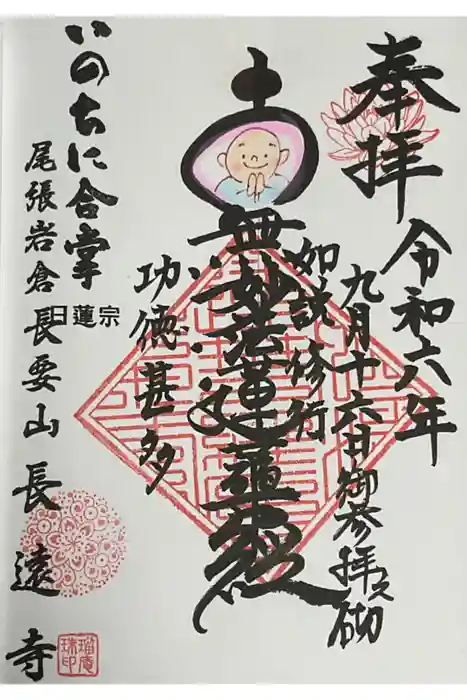 奉拝
令和六年
九月十六日御参拝之砌
如説修行
南無妙法蓮華經
功徳甚多
いのちに合掌
尾張岩倉
日蓮宗
長要山
長遠寺